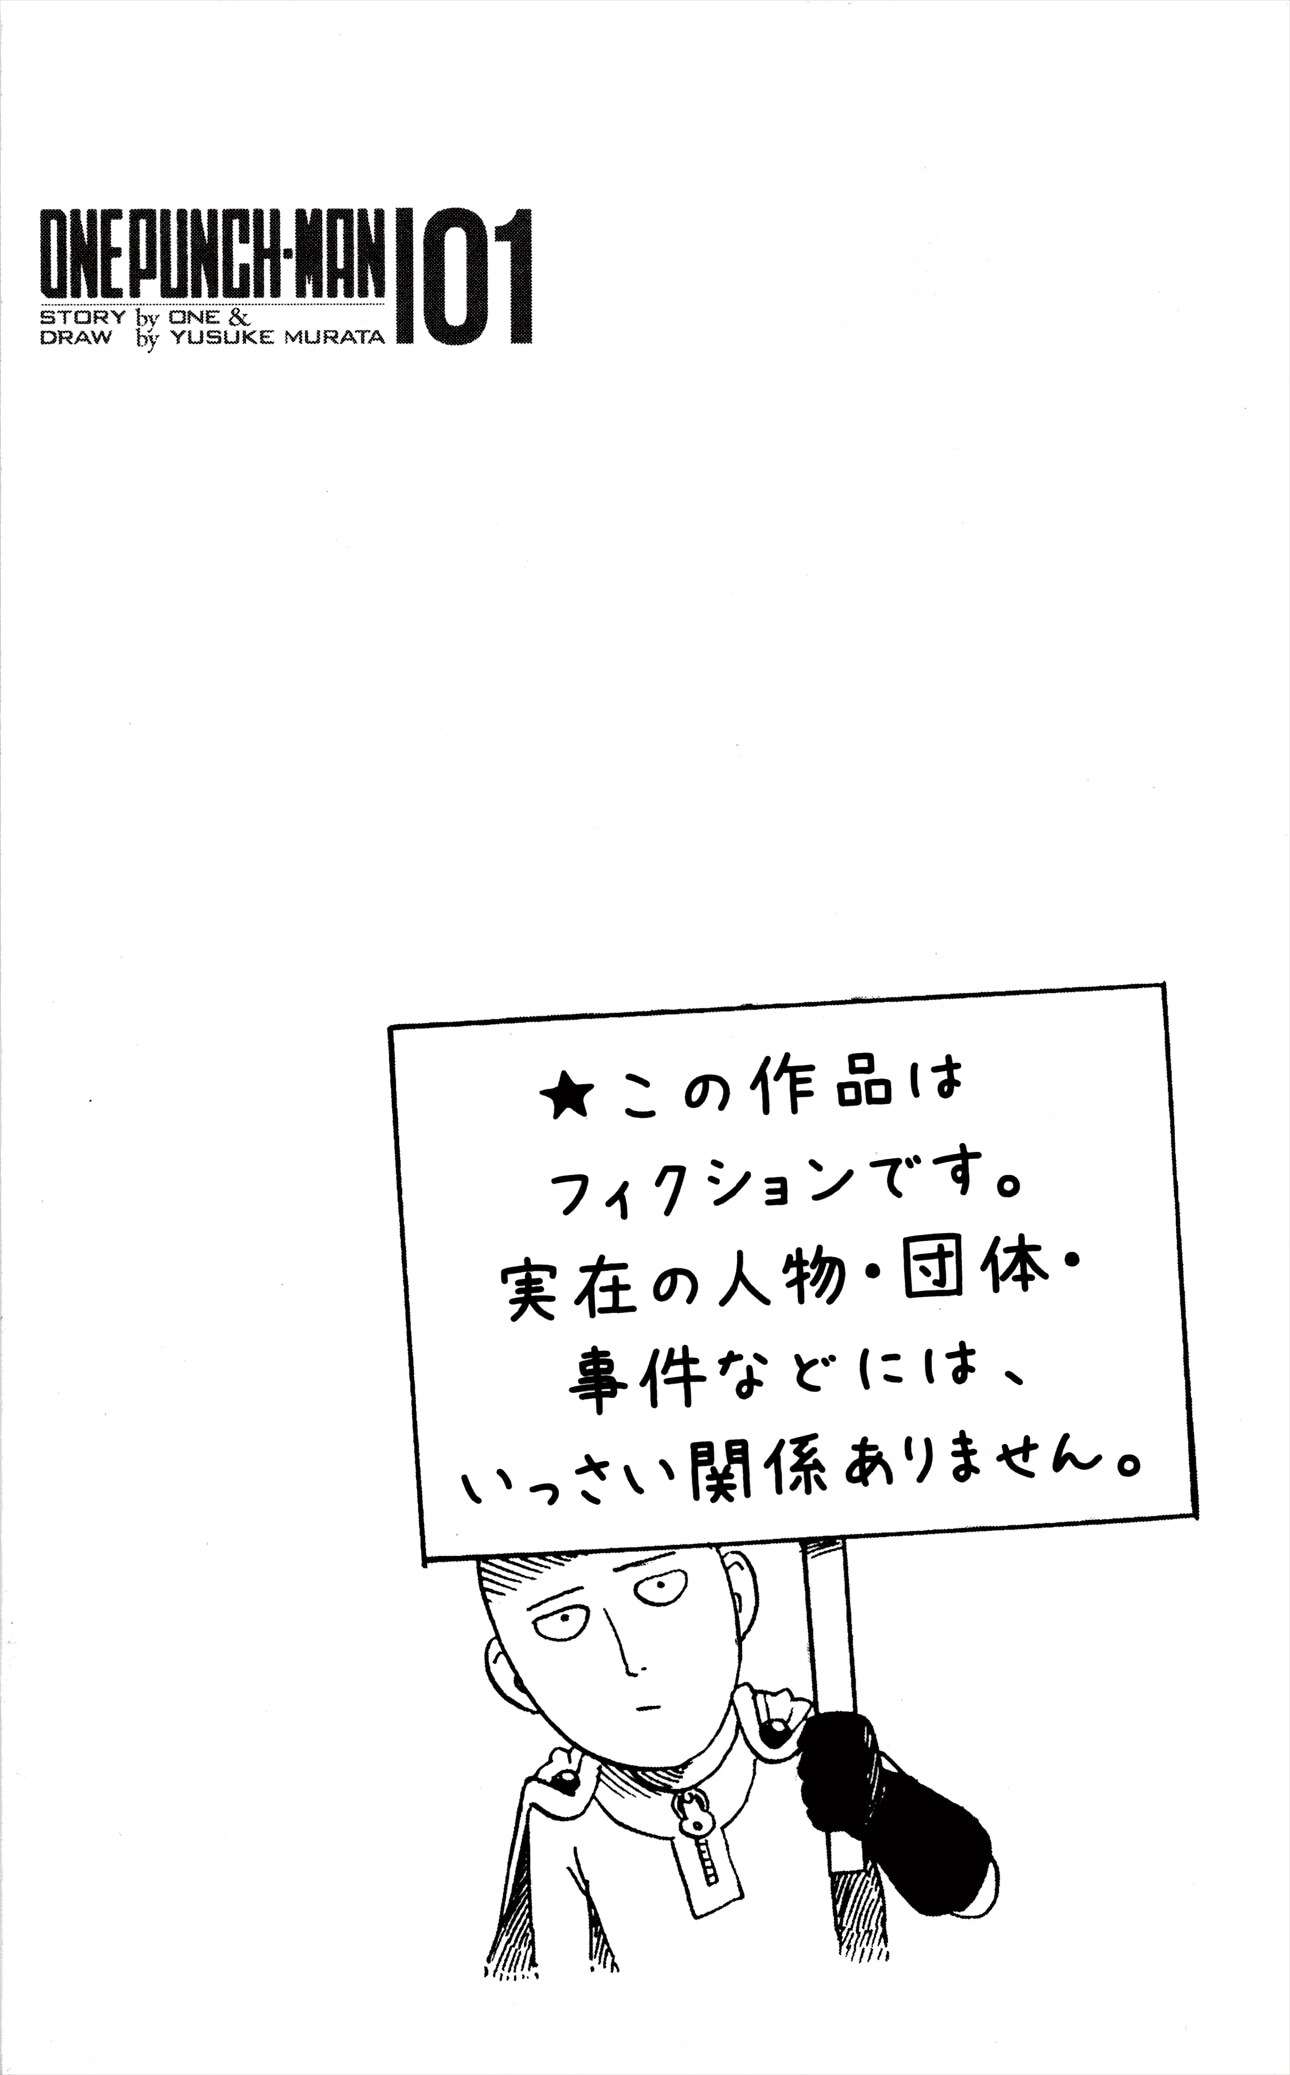 ONE PUNCH-MAN 01
STORY by ONE &
DRAW by YUSUKE MURATA
★この作品は
フィクションです。
実在の人物・団体・
事件などには、
いっさい関係ありません。